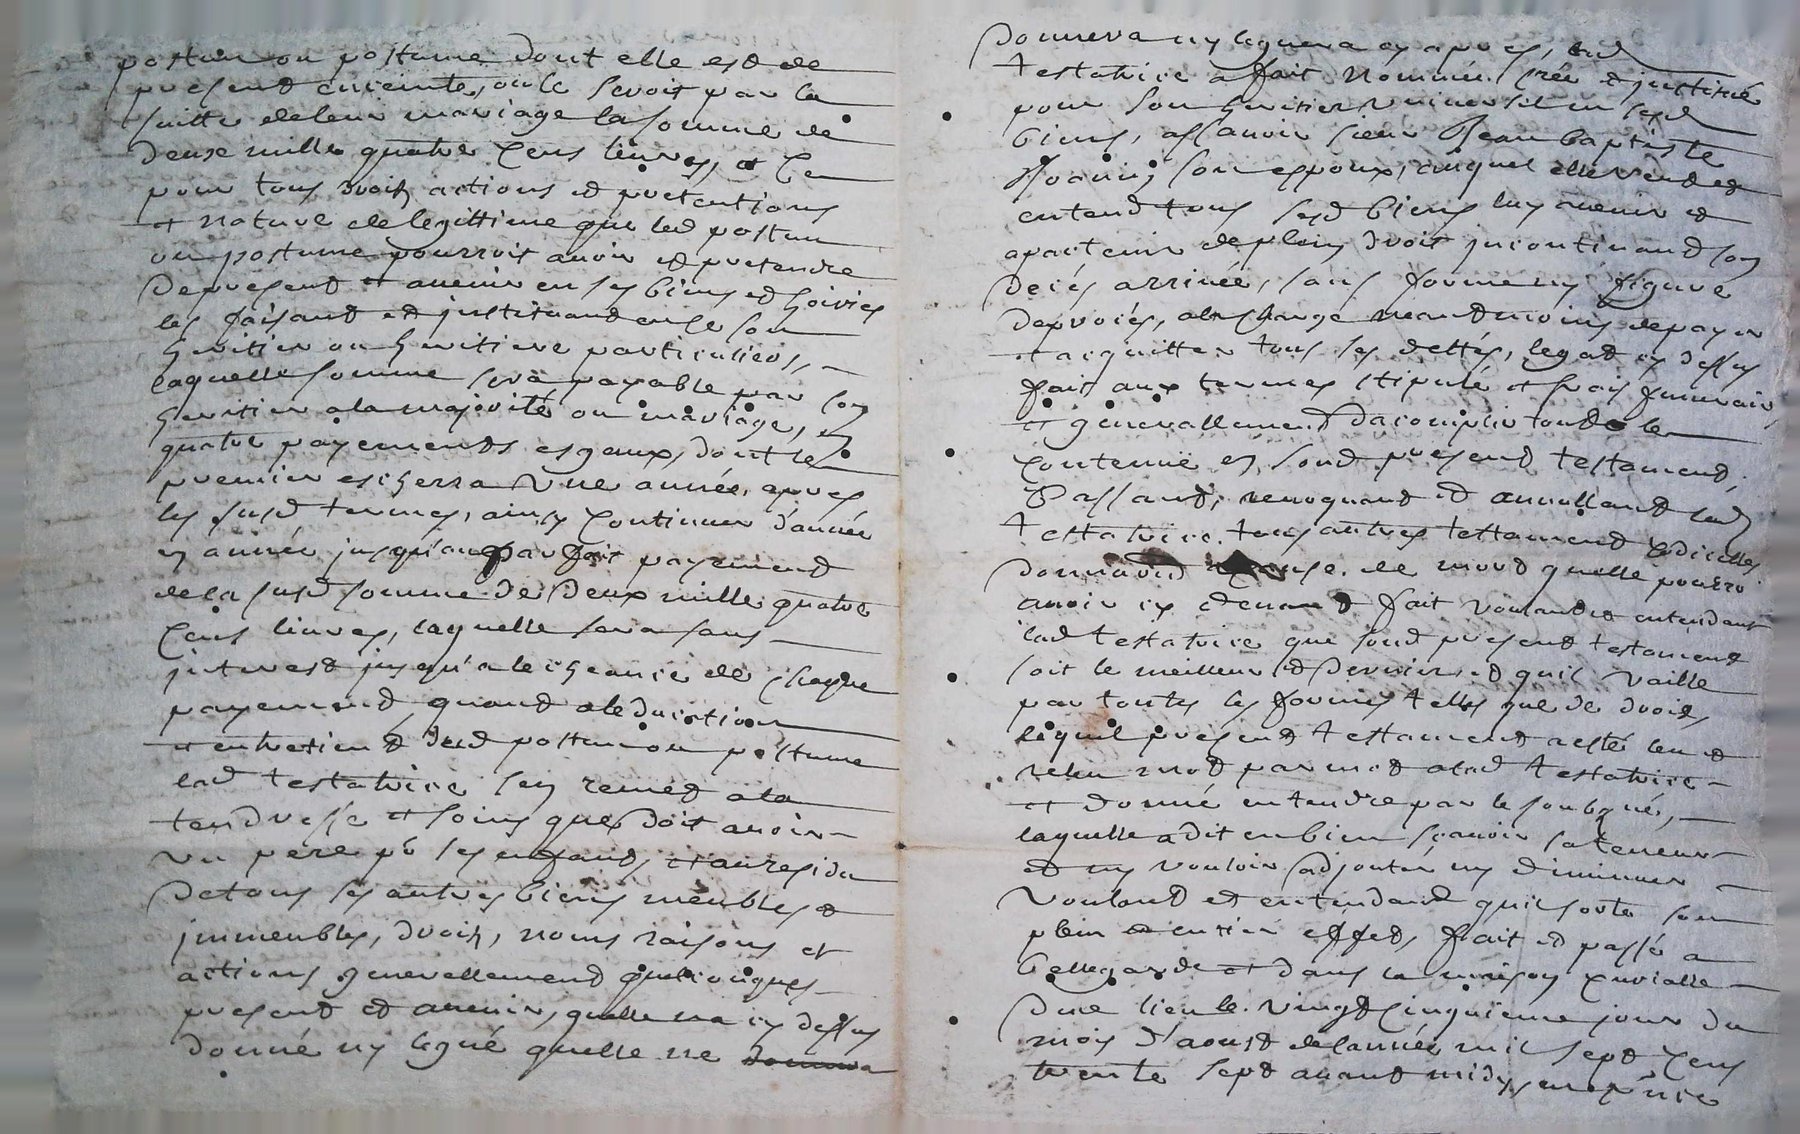 postum ou postume dont elle est de
present enceinte, ou le seroit par la
suitte de leur mariage la somme de
deux mille quatre cens livres, et ce
pour tous droits actions et pretentions
et nature de legittime que led postum
ou postume pourroit avoir et pretendre
de present et avenir en ses biens et hoiries
les faisant et instituand en ce son
heritier ou heritiere particuliers,
laquelle somme sera payable par son
heritier a la majorité ou mariage, en
quatre payements esgaux, dont le
premier escherra une année apres
les susd termes, ainsy continuer d'année
en année jusqu'au parfait payement
de la susd somme de deux mille quatre
cens livres, laquelle sera sans
interest jusqu'a le cheance de chaque
payement, quand a leducation
et entretient dud postum ou postume
lad testatrice sen remet a la
tendresse et soins que doit avoir
un pere pr ses enfants, et au residu
de tous ses autres biens meubles et
immeubles, droits, noms raisons et
actions generallement quelconques
present et avenir, quelle na cy dessus
donné ny legué quelle ne donnera
donnera ny leguera cy apres, lad
testatrice a fait nommé créé et institué
pour son heritier universel en sesd
biens, assavoir sieur Jean baptiste
son eppoux, auquel elle veut et
entend tous sesd biens luy avenir et
apartenir de plein droit incontinand son
decés arrivée, sans forme ny figure
de procés, a la charge neantmoins de payer
et acquitter tous ses dettes, legat cy dessus
fait aux termes stipulé et frais funerair,
et generallement dacomplir tout le
contenue en soud present testament,
Cassant, revoquant et annullant lad
testatrice tous autres testament codicilles
donnation a cause de mort quelle pourro
avoir cy devant fait voulant et entendant
lad testatrice que soud present testament
soit le meilleur et dernier et quil vaille
par toutes les formes telles que de droit,
lequel present testament a esté leu et
releu mot par mot a lad testatrice
et donné entendre par le soubgné,
laquelle a dit en bien sçavoir sa teneur
et ny vouloir adjouter ny diminuer
voulant et entendant quil sorte son
plein et entier effet, fait et passé a
bellegarde et dans la maison curialle
dud lieu le vingt cinquieme jour du
mois d'aoust de l'année mil sept cens
trente sept avant midy, en pnce